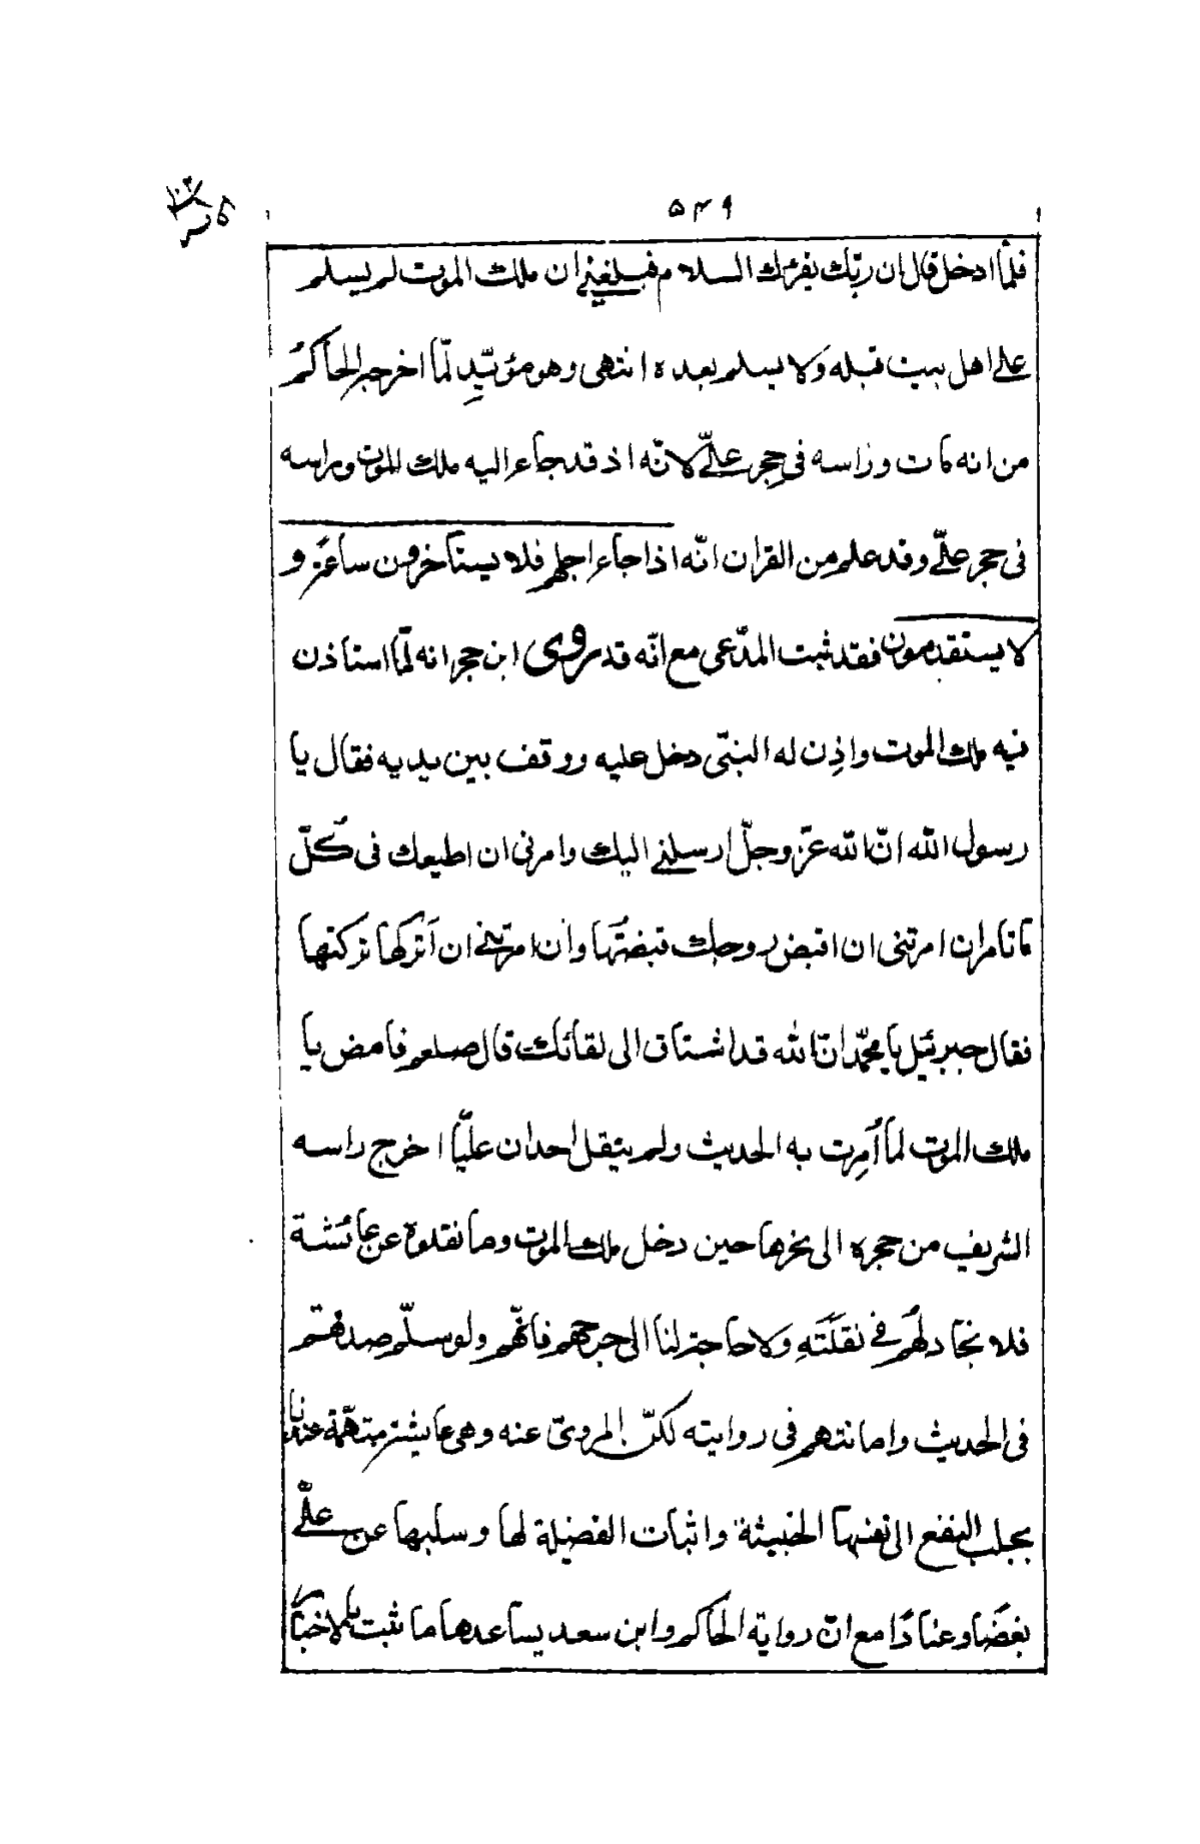 ٥٣٩
فلمّا ادخل قال ان ربّك يقرئك السلام فبلغني ان ملك الموت لم يسلم
على اهل بيت قبله وَلا يسلم بعده انتهى وهو مؤيّدِ لمّا اخرجه الحاكمُ
من انه مات وراسه فى حِجر علىّ لانّه اذ قد جاء اليه ملك الموت وراسه
فى حجر علىّ وقد علم من القران انّه اذا جاء اجلهم فلا يستأخرون ساعَة و
لا يستقدمون فقد ثبت المدّعى مع انّه قد روى ابن حجر انه لمّا استاذن
فيه ملك الموت واذِن له النبىّ دخل عليه ووقف بين يديه فقال يا
رسول الله انّ الله عزّ وجلّ ارسلني اليك وامرنى ان اطيعك فى كُلّ
ما تامر ان امرتنى ان اقبض روحك قبضتُها وان امرتني ان اَتركها تركتها
فقال جبرئيل يا محمّد انّ الله قد اشتاق الى لقائك قال صلعم فامض يا
ملك الموت لما اُمِرت به الحديث ولم ينقل احد ان عليّا اخرج راسه
الشريف من حجره الى نحرها حين دخل ملك الموت وما نقلوة عن عائشة
فلا نجادلهُم في نقلَتَهِ وَلا حاجة لنا الى جرحهم فانّهم ولو سلّم صدقهم
فى الحديث وامانتهم فى روايته لكنّ المروىّ عنه وهى عايشة متهمّة عندنا
بجلب النفع الى نفسها الخبيثة واثبات الفضيلة لها وسلبها عن علىّ
بغضًا وعنادًا مع انّ رواية الحاكم وابن سعد يساعدها ما ثبت